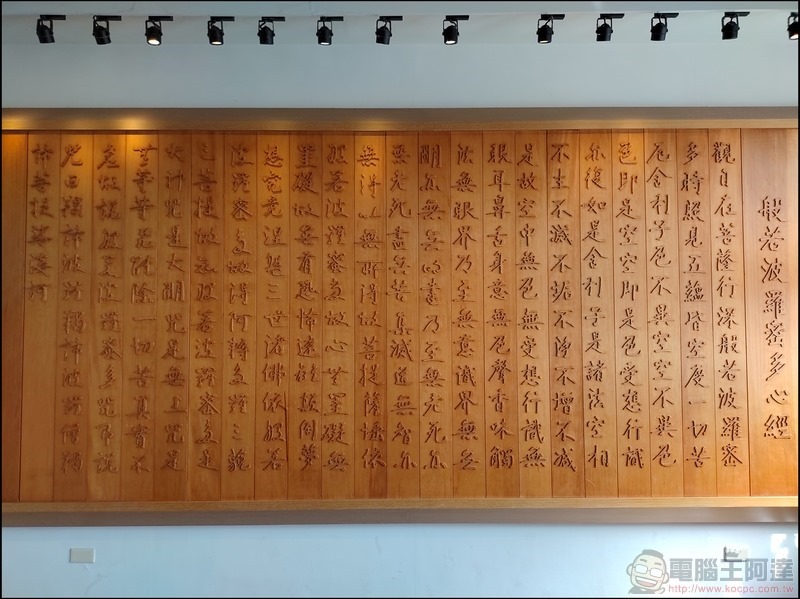 般若波羅蜜多心經
觀自在菩薩行深般若波羅蜜
多時照見五蘊皆空度一切苦
厄舍利子色不異空空不異色
色即是空空即是色受想行識
亦復如是舍利子是諸法空相
不生不滅不垢不淨不增不減
是故空中無色無受想行識無
眼耳鼻舌身意無色聲香味觸
法無眼界乃至無意識界無無
明亦無無明盡乃至無老死亦
無老死盡無苦集滅道無智亦
無得以無所得故菩提薩埵依
般若波羅蜜多故心無罣礙無
罣礙故無有恐怖遠離顛倒夢
想究竟涅槃三世諸佛依般若
波羅蜜多故得阿耨多羅三藐
三菩提故知般若波羅蜜多是
大神咒是大明咒是無上咒是
無等等咒能除一切苦真實不
虛故說般若波羅蜜多咒即說
咒曰揭諦波羅揭諦波羅僧揭
諦菩提薩婆訶
電腦王阿達
http://www.kocpc.com.tw